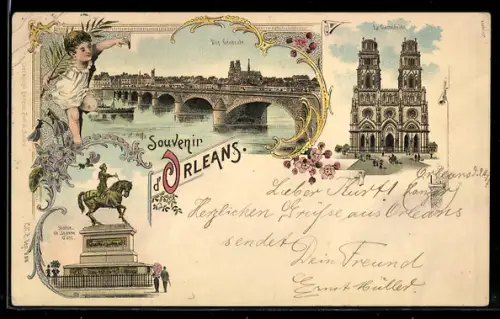 Vue Générale.
La Cathédrale
Souvenir
d'ORLEANS.
Statue
de Jeanne
d'Arc.
Orleans d.
Lieber Kurt!
Herzlichen Grüße aus Orleans
sendet
Dein Freund
Ernst Müller.